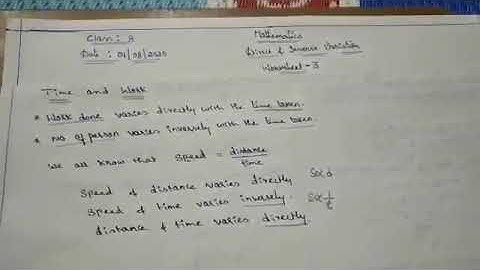 Class: 8
Mathematics
Date: 04/08/2020
Direct & Inverse Variation
Worksheet - 3
Time and Work
* Work done varies directly with the time taken.
* No. of person varies inversely with the time taken.
We all know that speed = distance/time
Speed & distance varies directly S∝d
Speed & time varies inversely. S∝1/t
distance & time varies directly.